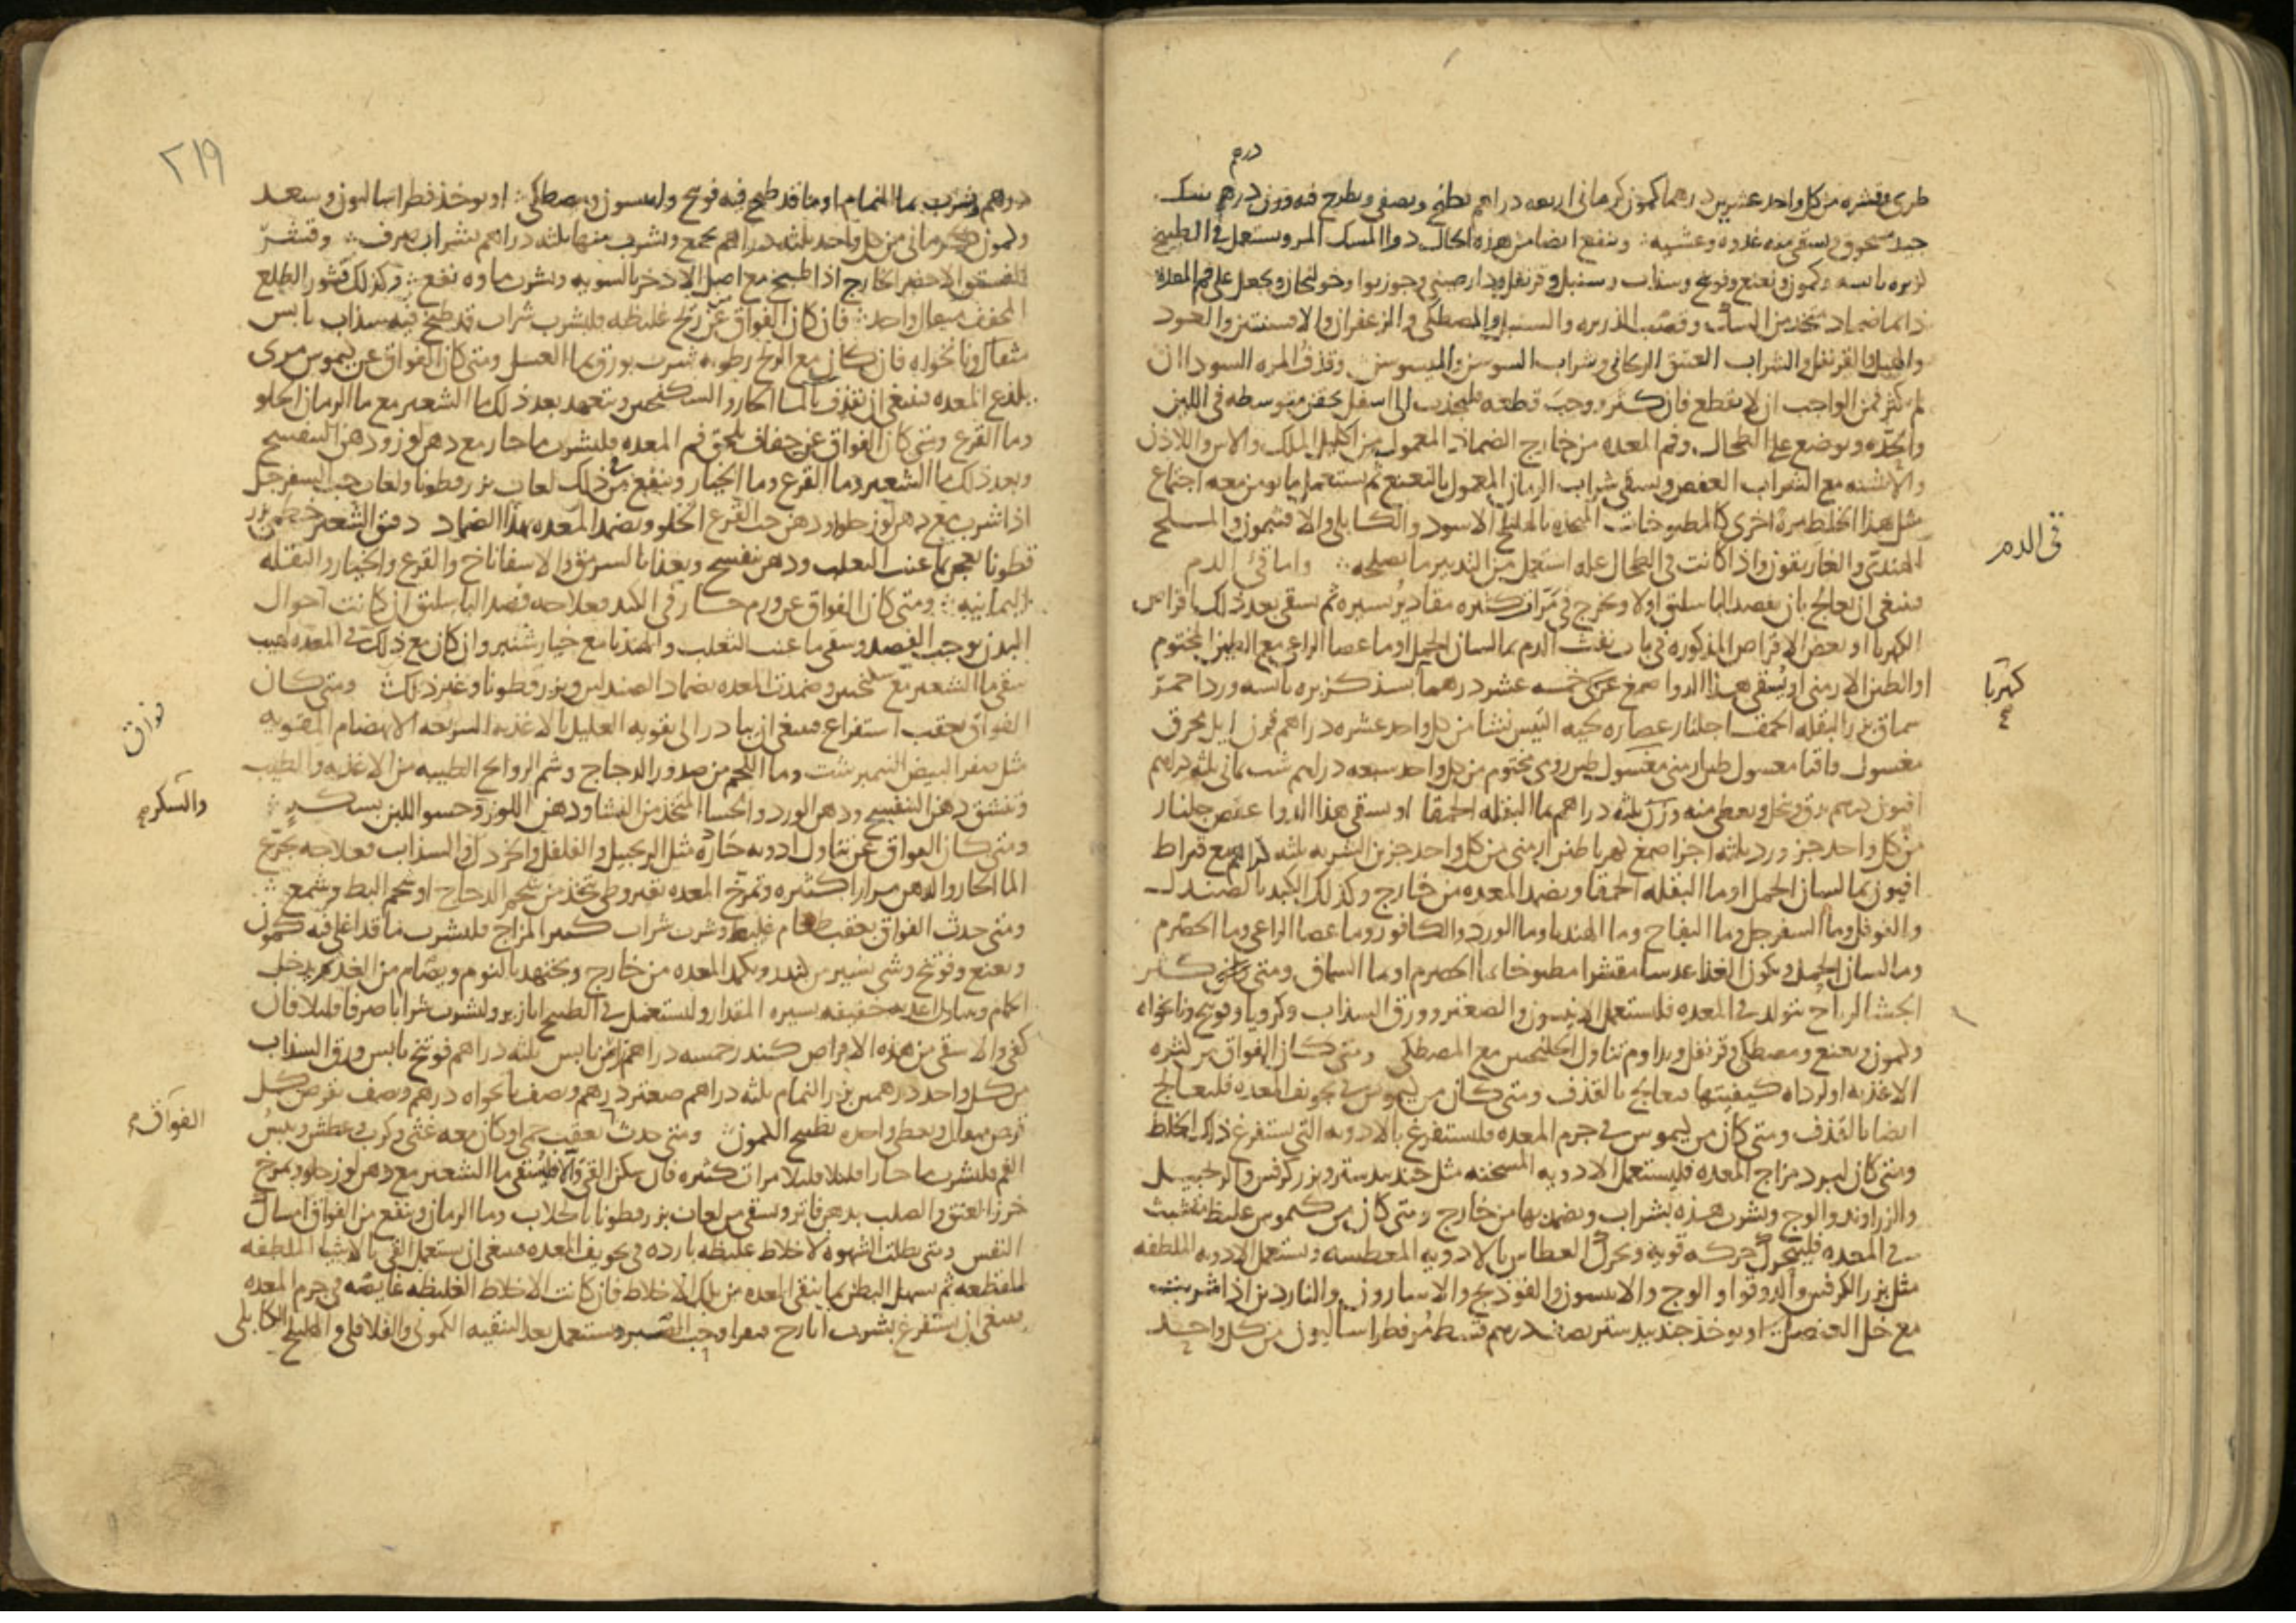 درهم
طرى وقشره من كل واحد عشرين درهما كمون كرمانى اربعه دراهم يطبخ ويصفى ويطرح فيه وزن درهم سك
جيد مسحوق ويسقى منه غدوه وعشيه وينفع ايضا من هذه الحال دوا المسك المر ويستعمل فى الطبيخ
كزبره يابسه وكمون ونعنع وفوتنج وسذاب وسنبل وقرنفل ودارصينى وجوزبوا وخولنجان ويجعل على فم المعده
دايما ضماد متخذ من السك وقصب الذريره والسنبل والمصطكى والزعفران والافسنتين والعود
والقرنفل والشراب العتيق الريحانى وشراب السوسن والميسوسن وقذف المره السودا ان
لم يكثر فمن الواجب ان لا يقطع فان كثر ووجب قطعه فليجذب الى اسفل بحقن متوسطه فى اللين
والحده ويوضع على الطحال وفم المعده من خارج الضماد المعمول من اكليل الملك والاس واللاذن
والاشنه مع الشراب العفص ويسقى شراب الرمان المعمول بالنعنع ثم يستعمل ما يومن معه اجتماع
مثل هذا الخلط مره اخرى كالمطبوخات المتخذه بالهليلج الاسود والكابلى والافتيمون والملح
الهندى والغاريقون واذا كانت فى الطحال عله استعمل من التدبير ما يصلحه واما قى الدم
فينبغى ان يعالج بان يفصد الباسليق اولا ويخرج فى مرات كثيره مقادير يسيره ثم يسقى بعد ذلك اقراص
الكهربا او بعض الاقراص المذكوره فى باب نفث الدم بما لسان الحمل او ما عصا الراعى مع الطين المختوم
او الطين الارمنى او يسقى هذا الدوا صمغ عربى خمسه عشر درهما بسذ كزبره يابسه ورد احمر
سماق بزر البقله الحمقا جلنار عصاره لحيه التيس نشا من كل واحد عشره دراهم قرن ايل محرق
مغسول واقيا مغسول طين ارمنى مغسول طين رومى مختوم من كل واحد سبعه دراهم شب يمانى ثلثه دراهم
افيون درهم يدق وينخل ويعطى منه وزن ثلثه دراهم بما البقله الحمقا او يسقى هذا الدوا عفص جلنار
من كل واحد جز ورد ثلثه اجزا صمغ كهربا طين ارمنى من كل واحد جزين الشربه ثلثه دراهم مع قيراط
افيون بما لسان الحمل او ما البقله الحمقا ويضمد المعده من خارج وكذلك الكبد بالصندل
والفوفل وما السفرجل وما التفاح وما الهندبا وما الورد والكافور وما عصا الراعى وما الحصرم
وما لسان الحمل ويكون الغذا عدسا مقشرا مطبوخا بما الحصرم او ما السماق ومتى كثر
الجشا لرياح تتولد فى المعده فليستعمل الانيسون والصعتر وورق السذاب وكرويا وفوتنج ونانخواه
وكمون ونعنع ومصطكى وقرنفل ويداوم تناول الجلنجبين مع المصطكى ومتى كان الفواق من كثره
الاغذيه او لرداه كيفيتها فيعالج بالقذف ومتى كان من كيموس فى تجويف المعده فليعالج
ايضا بالقذف ومتى كان من كيموس فى جرم المعده فليستفرغ بالادويه التى تستفرغ ذلك الخلط
ومتى كان لبرد مزاج المعده فليستعمل الادويه المسخنه مثل جندبيدستر وبزر كرفس والزنجبيل
والزراوند والوج ويشرب هذه بشراب ويضمد بها من خارج ومتى كان من كيموس غليظ متشبث
فى المعده فليتحرك حركه قويه ويحرك العطاس بالادويه المعطسه ويستعمل الادويه الملطفه
مثل بزر الكرفس والدوقوا والوج والانيسون والفوذنج والاسارون والناردين اذا شربت
مع خل العنصل او يوخذ جندبيدستر نصف درهم قسط مر فطراساليون من كل واحد
قى الدم
كهربا
٢١٩
درهم ويشرب بما النمام او ما قد طبخ فيه فوتنج وانيسون ومصطكى او يوخذ فطراساليون وسعد
وكمون كرمانى من كل واحد ثلثه دراهم يجمع ويشرب منها ثلثه دراهم بشراب صرف وقشر
الفستق الاخضر الخارج اذا طبخ مع اصل الاذخر بالسويه وشرب ماوه نفع وكذلك قشور الطلع
المجفف مثقال واحد فان كان الفواق عن ريح غليظه فليشرب شراب قد طبخ فيه سذاب يابس
مثقال ونانخواه فان كان مع الريح رطوبه شرب بورق بما العسل ومتى كان الفواق عن كيموس مرى
يلذع المعده فينبغى ان يقذف بالما الحار والسكنجبين ويتعهد بعد ذلك ما الشعير مع ما الرمان الحلو
وما القرع ومتى كان الفواق عن جفاف يلحق فم المعده فليشرب ما حار مع دهن لوز ودهن البنفسج
وبعد ذلك ما الشعير وما القرع وما الخيار وينفع من ذلك لعاب بزر قطونا ولعاب حب السفرجل
اذا شرب مع دهن لوز حلو ودهن حب القرع الحلو ويضمد المعده بهذا الضماد دقيق الشعير خطمى بزر
قطونا يعجن بما عنب الثعلب ودهن بنفسج ويغذا بالسرمق والاسفاناخ والقرع والخيار والبقله
اليمانيه ومتى كان الفواق عن ورم حار فى الكبد فعلاجه فصد الباسليق ان كانت احوال
البدن توجب الفصد وسقى ما عنب الثعلب والهندبا مع خيار شنبر وان كان مع ذلك فى المعده لهيب
سقى ما الشعير مع سكنجبين وضمدت المعده بضماد الصندلين وبزر قطونا وغير ذلك ومتى كان
الفواق بعقب استفراغ فينبغى ان يبادر الى تقويه العليل بالاغذيه السريعه الانهضام المقويه
مثل صفر البيض النيمرشت وما اللحم من صدور الدجاج وشم الروايح الطيبه من الاغذيه والطيب
وتنشق دهن البنفسج ودهن الورد والحسا المتخذ من النشا ودهن اللوز وحسو اللبن بسكر
ومتى كان الفواق عن تناول ادويه حاره مثل الزنجبيل والفلفل والخردل والسذاب فعلاجه تجرع
الما الحار والدهن مرارا كثيره وتمرخ المعده بقيروطى يتخذ من شحم الدجاج او شحم البط وشمع
ومتى حدث الفواق بعقب طعام غليظ وشرب شراب كسر المزاج فليشرب ما قد اغلى فيه كمون
ونعنع وفوتنج وشى يسير من كندر ويكمد المعده من خارج ويجتهد بالنوم ويصام من الغد ويدخل
الحمام ويتناول اغذيه خفيفه يسيره المقدار وليستعمل فى الطبيخ ابازير وليشرب شرابا صرفا قليلا فان
كفى والا سقى من هذه الاقراص كندر خمسه دراهم يابس ثلثه دراهم فوتنج يابس ورق السذاب
من كل واحد درهمين بزر النمام ثلثه دراهم صعتر درهم ونصف نانخواه درهم ونصف يقرص كل
قرص مثقال ويعطى واحده بطبيخ الكمون ومتى حدث بعقيب حمى وكان معه غثى وكرب وعطش ويبس
الفم فليشرب ما حارا قليلا قليلا مرات كثيره فان سكن القى والا فليسقى ما الشعير مع دهن لوز حلو ويمرخ
خرز العنق والصلب بدهن فاتر ويسقى من لعاب بزر قطونا بالجلاب وما الرمان وينفع من الفواق امساك
النفس ومتى بطلت الشهوه لاخلاط غليظه بارده فى تجويف المعده فينبغى ان يستعمل القى بالاشيا الملطفه
المقطعه ثم يسهل البطن بما ينقى المعده من تلك الاخلاط فان كانت الاخلاط الغليظه غايصه فى جرم المعده
فينبغى ان يستفرغ بشرب ايارج فيقرا وحب الصبر ويستعمل بعد التنقيه الكمونى والفلافلى والهليلج الكابلى
فواق
والسكر
الفواق